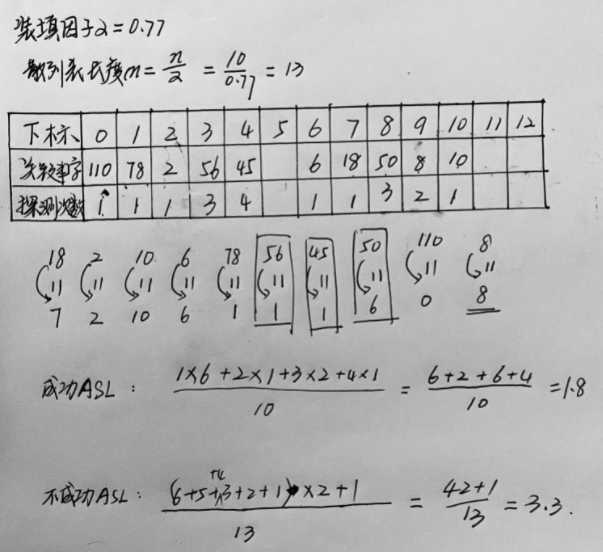 装填因子α=0.77
散列表长度m=n/α=10/0.77=13
下标 0 1 2 3 4 5 6 7 8 9 10 11 12
关键字 110 78 2 56 45 6 18 50 8 10
探测次数 1 1 1 3 4 1 1 3 2 1
18 2 10 6 78 56 45 50 110 8
11 11 11 11 11 11 11 11 11 11
7 2 10 6 1 1 1 6 0 8
成功ASL: 1×6+2×1+3×2+4×1/10=6+2+6+4/10=1.8
不成功ASL: (6+5+4+3+2+1)×2+1/13=42+1/13=3.3.